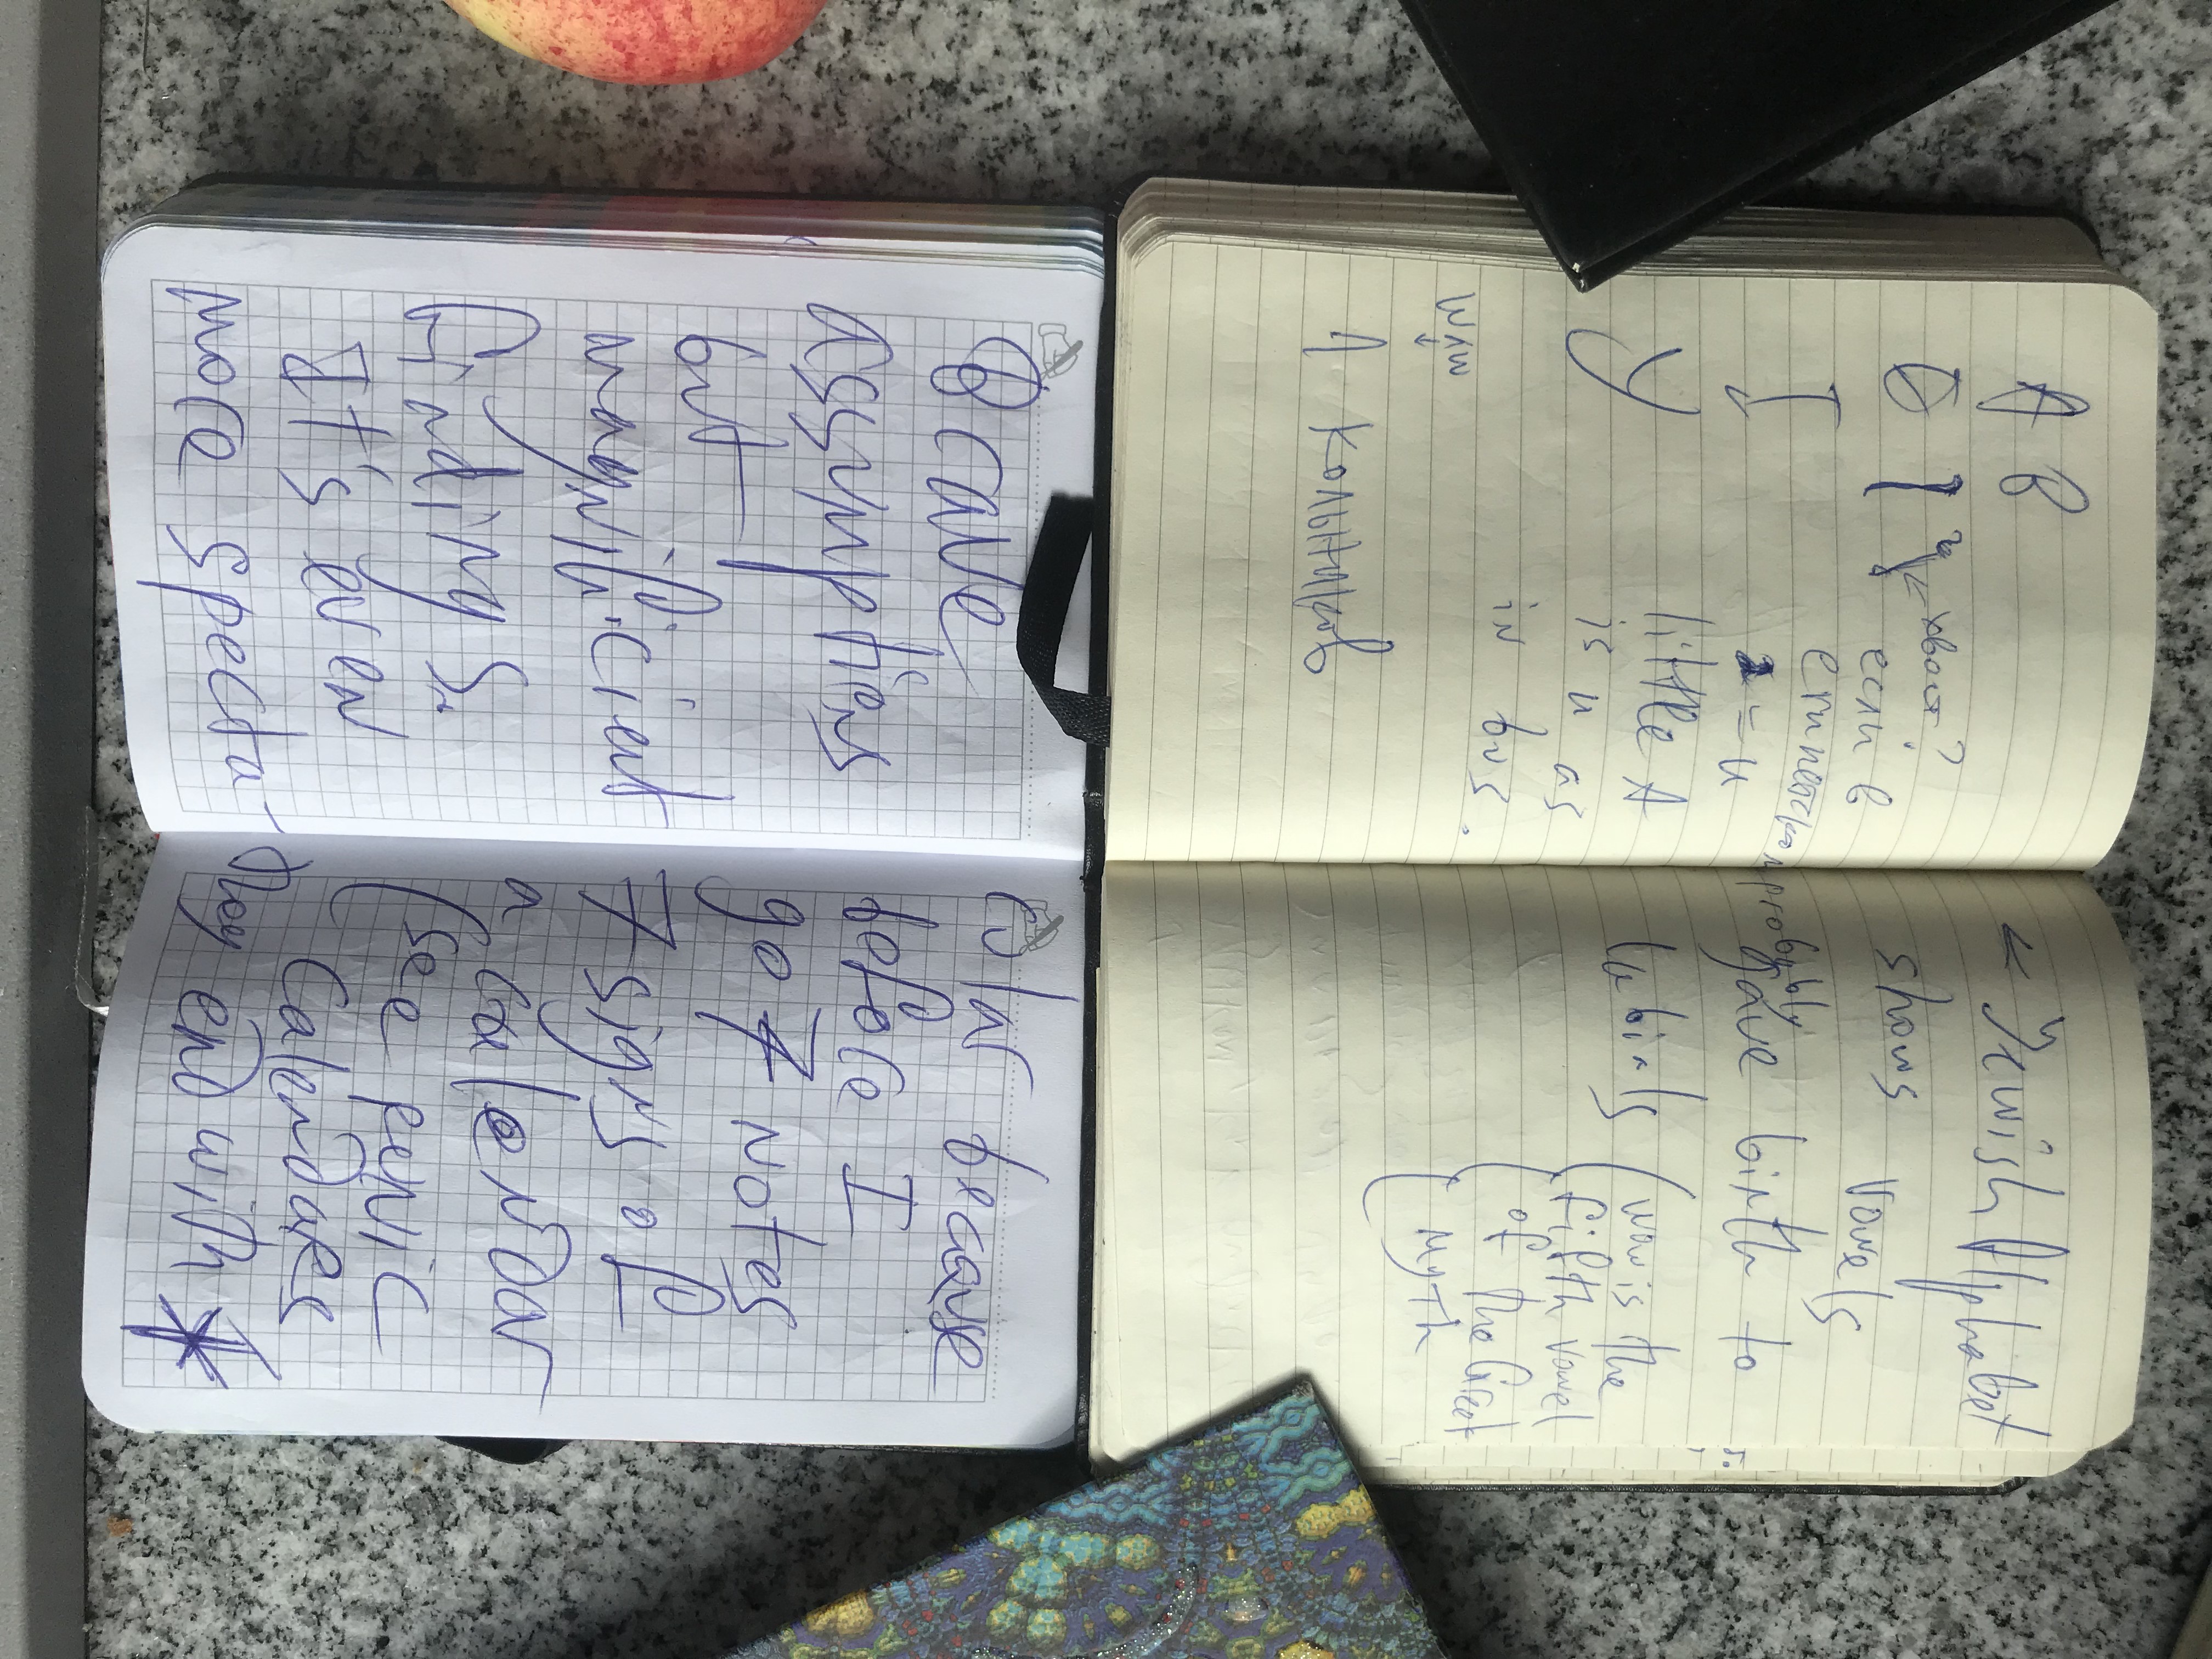 A B
хвост?
если в
египетском
= u
little A
is u as
in bus.
waw
Jewish Alphabet
shows vowels
probably
gave birth to
labials (waw is the
fifth vowel
of the Great
Myth)
assumptions
but
magnificient
findings.
It's even
more specta-
cular because
before I
go 7 notes
7 signs of
a calendar
(see penic
calendars
they end with *